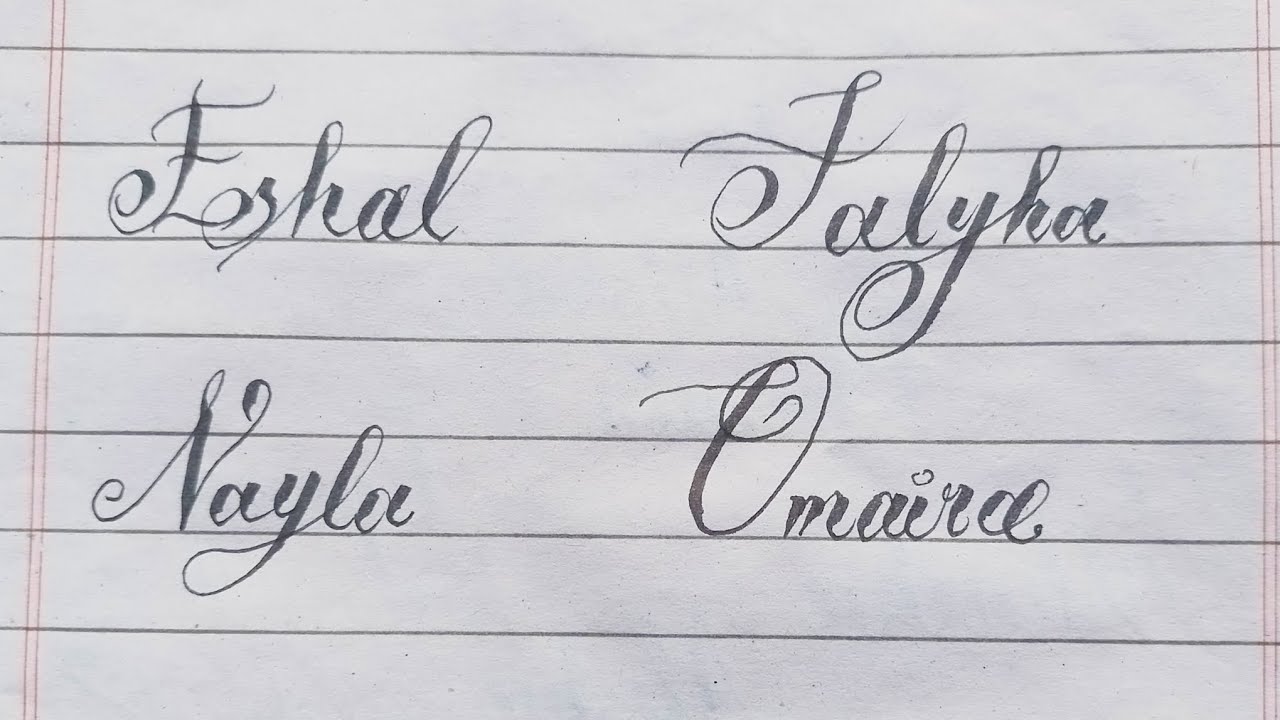 Eshal Talyha
Nayla Omaira